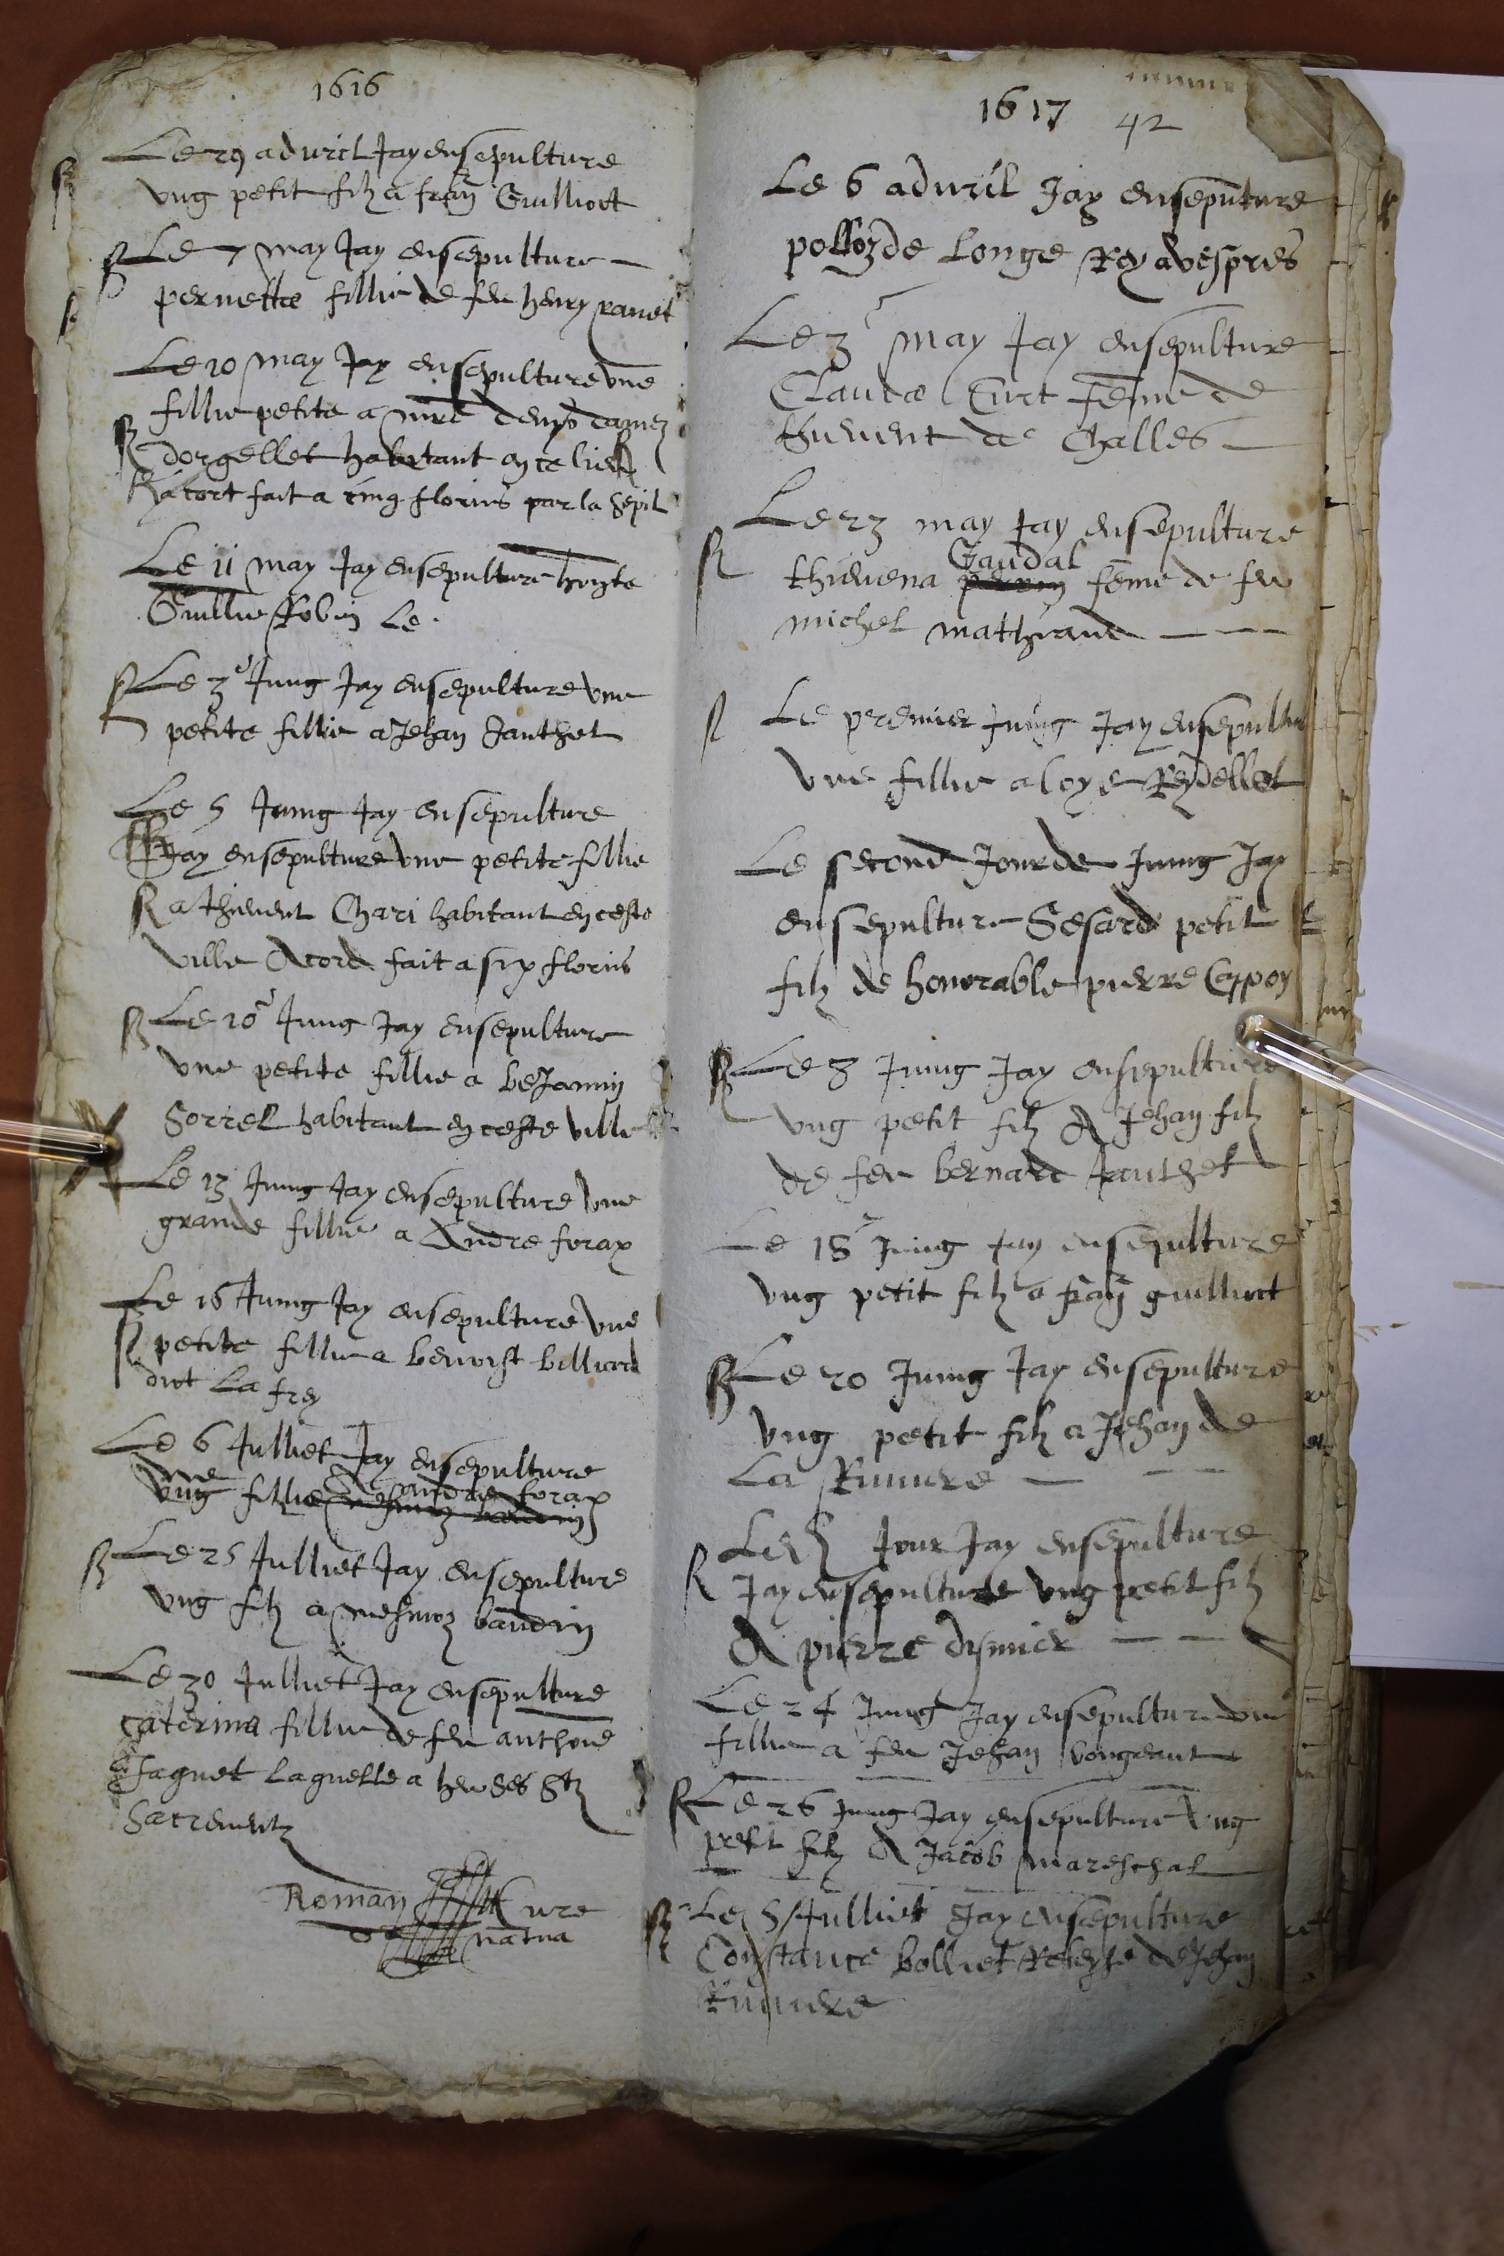 1616
Le 29 advril Jay ensepulture
ung petit filz a fran Guilliot
Le 7 may Jay ensepulture
pernette fillie de feu henry ravet
Le 10 may Jay ensepulture une
fillie petite a mre denys
dorgellet habitant en ce lieu
acort fait a cinq florins par la sepil
Le 11 may Jay ensepulture
Guillie Robin Le
Le 3e Jung Jay ensepulture une
petite fillie a Jehan Janthet
Le 5 Juing Jay ensepulture
Jay ensepulture une petite fillie
a thievent Chari habitant en ceste
ville Acord fait a six florins
Le 10e Jung Jay ensepulture
une petite fillie a beJamin
Sorrel habitant en ceste ville
Le 13 Jung Jay ensepulture une
grande fillie a Andre forax
Le 16 Juing Jay ensepulture une
petite fillie a benoist billiard
dict La frey
Le 6 Julliet Jay ensepulture
une
ung fillie a andre forax
Le 25 Julliet Jay ensepulture
ung filz a mesmoz baudin
Le 30 Julliet Jay ensepulture
Caterina fillie de feu anthone
Jaquet laquelle a heu ses Stz
Sacrementz
Roman Cure
nantua
1617
42
Le 6 advril Jay ensepulture
de Longe Rey a vespres
Le 3 may Jay ensepulture
Clauda Curt feme de
thievent de Challes
Le 23 may Jay ensepulture
Gaudal
thievena feme de feu
michel mathiand
Le premier Juing Jay ensepultu
une fillie a loye Reydellet
Le second Jour de Juing Jay
ensepulture Sesard petit
filz de honorable pierre
Le 8 Juing Jay ensepulture
ung petit filz A Jehan filz
de feu bernard Janthet
Le 18 Juing Jay ensepulture
ung petit filz a fran guilliot
Le 20 Juing Jay ensepulture
ung petit filz a Jehan de
La Riviere
Led Jour Jay ensepulture
Jay ensepulture ung petit filz
A pierre disnier
Le 24 Jung Jay ensepulture une
fillie a feu Jehan vongeant
Le 26 Jung Jay ensepulture ung
petit filz A Jacob mareschal
Le 5 Julliet Jay ensepulture
Constance bolliet de Jehan
Riviere